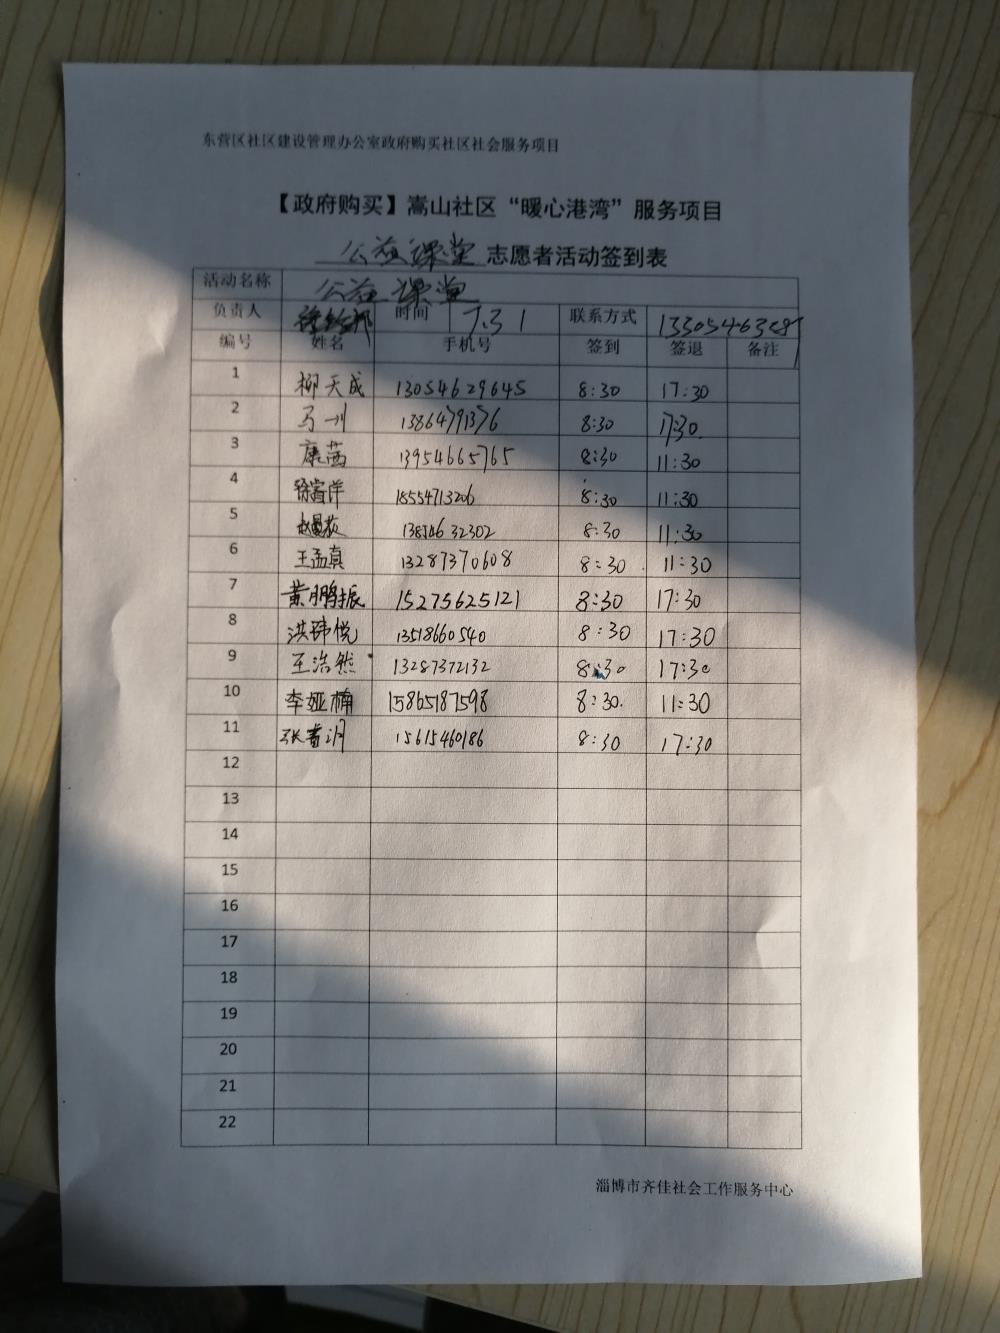 东营区社区建设管理办公室政府购买社区社会服务项目
【政府购买】嵩山社区“暖心港湾”服务项目
公益课堂 志愿者活动签到表
活动名称 公益课堂
负责人 时间 7.31 联系方式
编号 姓名 手机号 签到 签退 备注
1 柳天成 13054629645 8:30 17:30
2 马训 13864791376 8:30 17:30.
3 康茜 13954665765 8:30 11:30
4 18554713206 8:30 11:30
5 13854632302 8:30 11:30
6 王孟真 13287370608 8:30 11:30
7 黄鹏振 15275625121 8:30 17:30
8 洪玮悦 13518660540 8:30 17:30
9 王浩然 13287372132 8:30 17:30
10 李娅楠 15865187598 8:30. 11:30
11 15615460186 8:30 17:30
12
13
14
15
16
17
18
19
20
21
22
淄博市齐佳社会工作服务中心